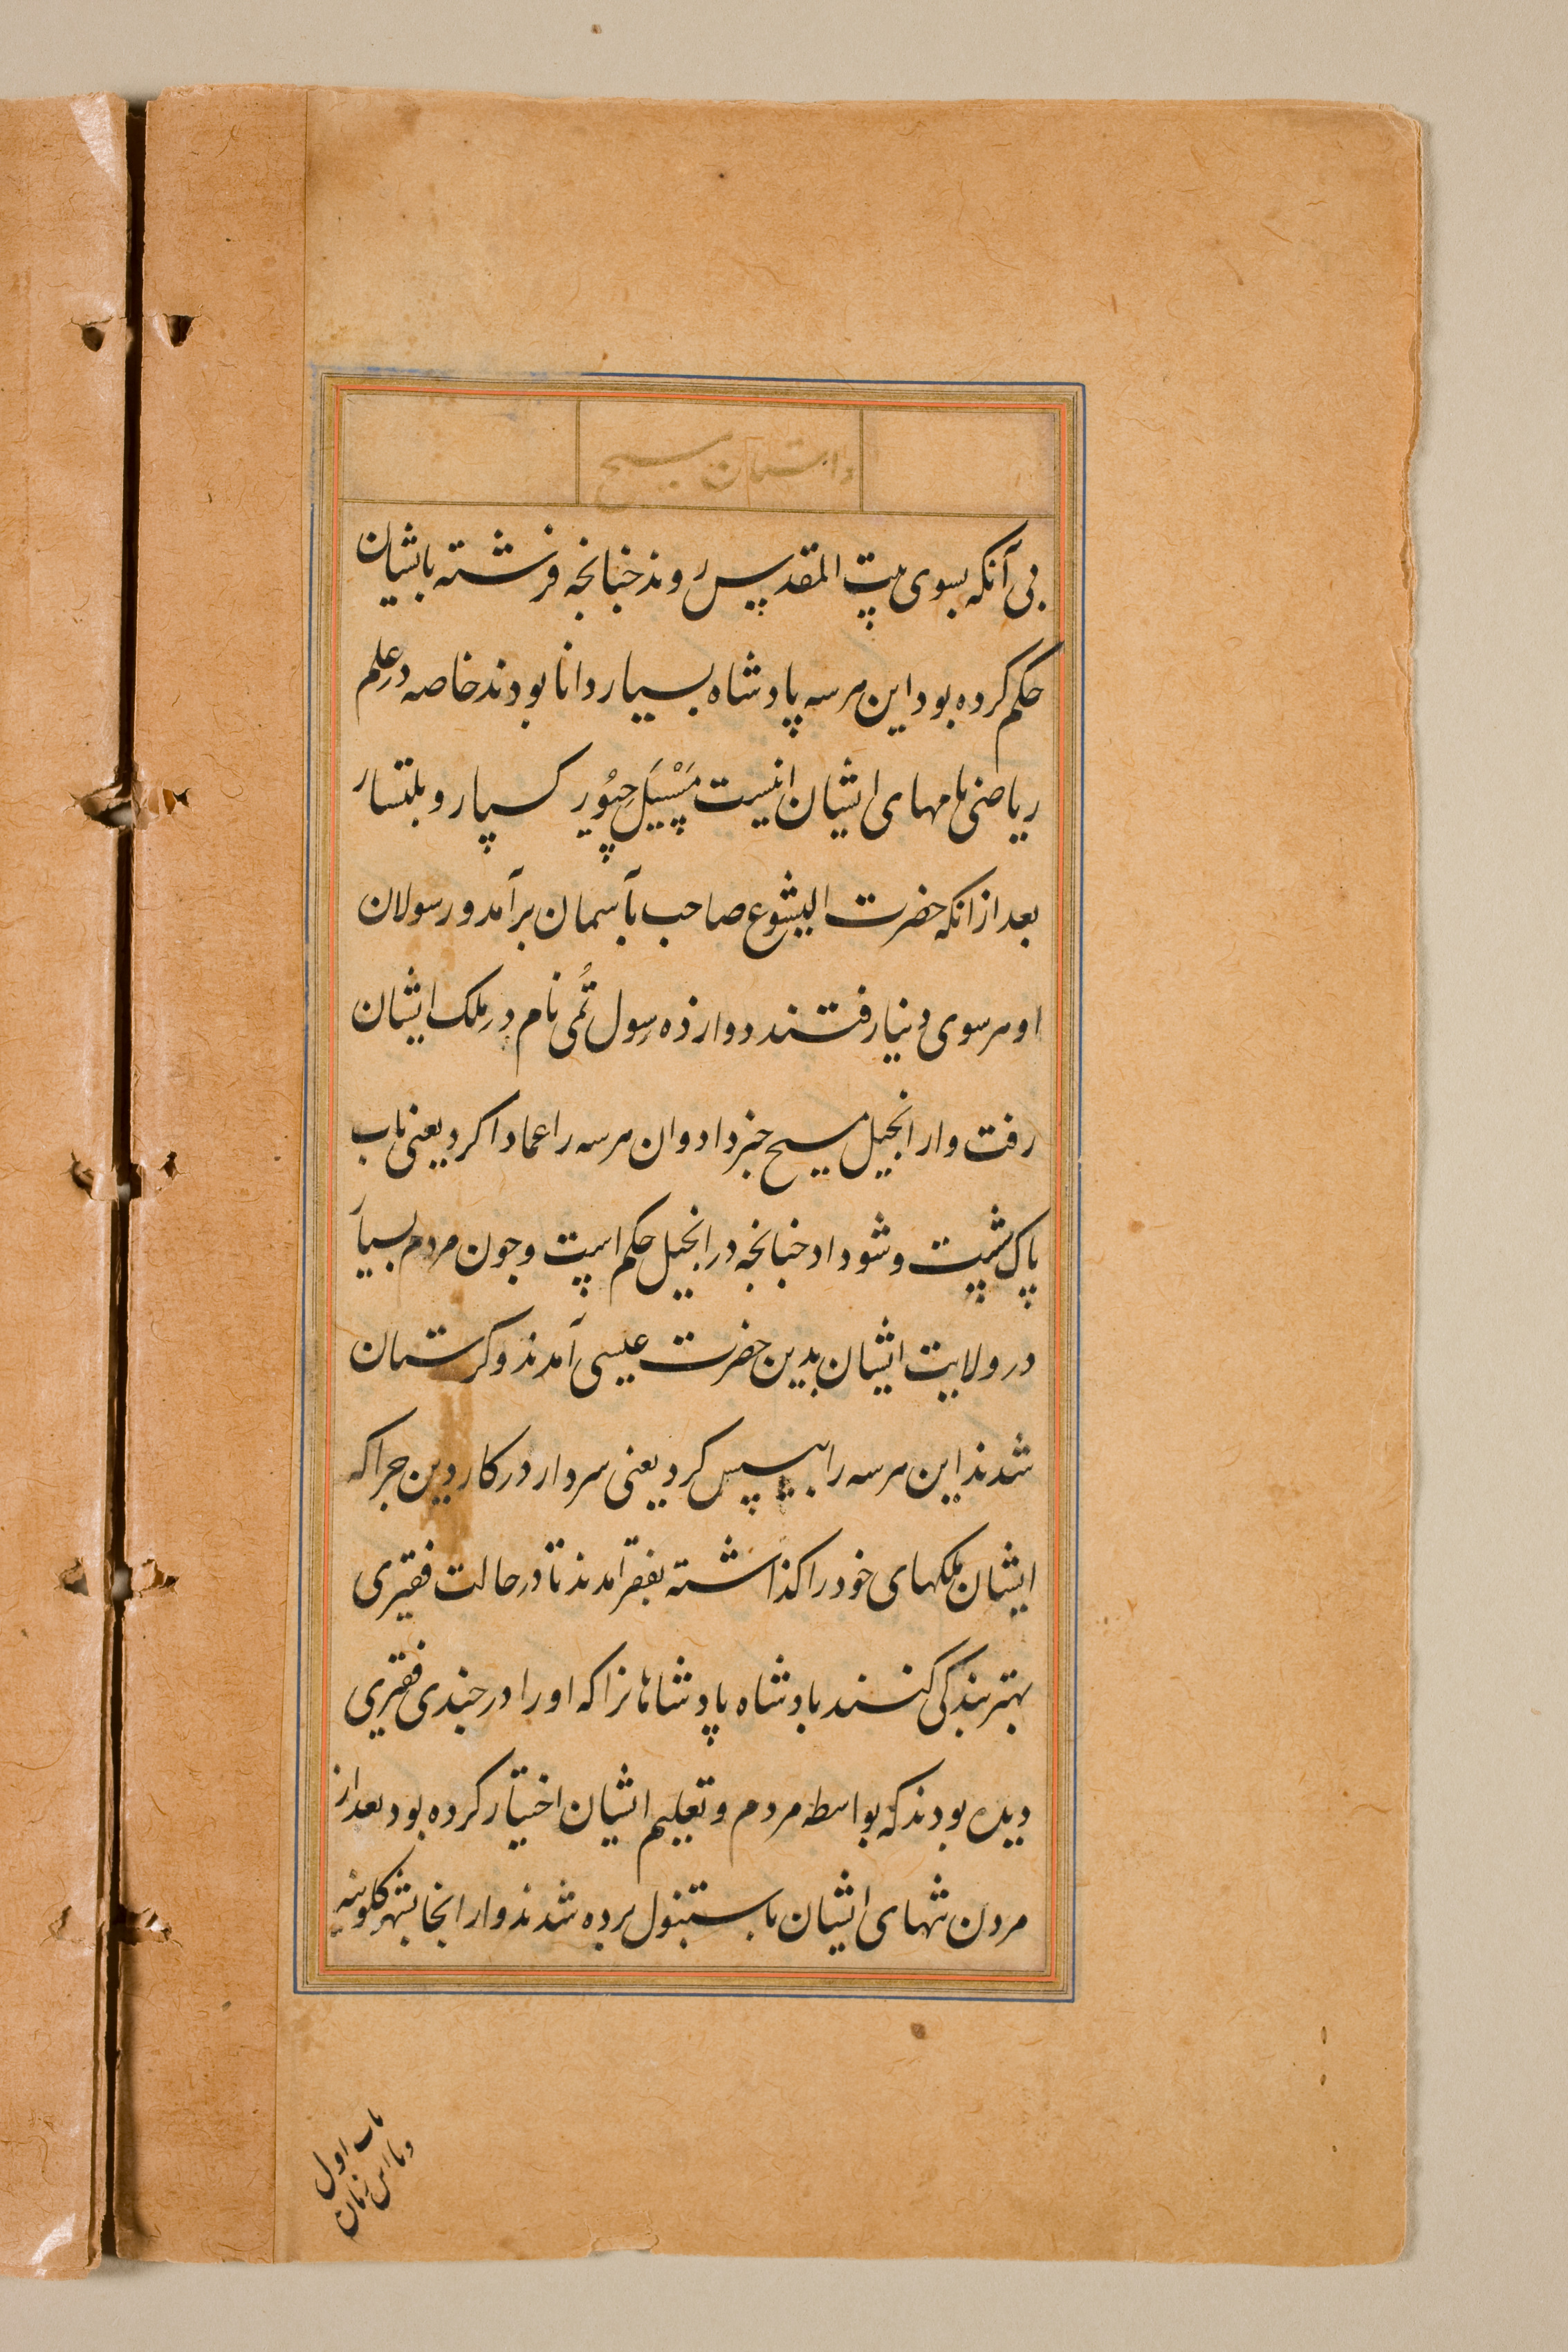 داستان مسیح
بی آنکه بسوی بیت المقدس روند جنانجه فرشته بایشان
حکم کرده بود این هر سه پادشاه بسیار دانا بودند خاصه در علم
ریاضی نامهای ایشان اینست کسپار و بلتسار
بعد از انکه حضرت ایشوع صاحب بآسمان برآمد و رسولان
او هر سوی دنیا رفتند دوازده رسول تُمی نام در ملک ایشان
رفت و از انجیل مسیح خبر داد و ان هر سه را اعماد کرد یعنی باب
پاک شست و شو داد جنانجه در انجیل حکم است و جون مردم بسیار
در ولایت ایشان بدین حضرت عیسی آمدند و کرستان
شدند این هر سه را بیسپس کرد یعنی سردار در کار دین جراکه
ایشان ملکهای خود را کذاشته بفقر امدند تا در حالت فقیری
بهتر بندکی کنند بادشاه پادشاهانرا که او را در جندی فقیری
دیده بودند که بواسطه مردم و تعلیم ایشان اختیار کرده بود بعد از
مردن تنهای ایشان باستنبول برده شدند و از انجا بشهر کلونیه
باب اول